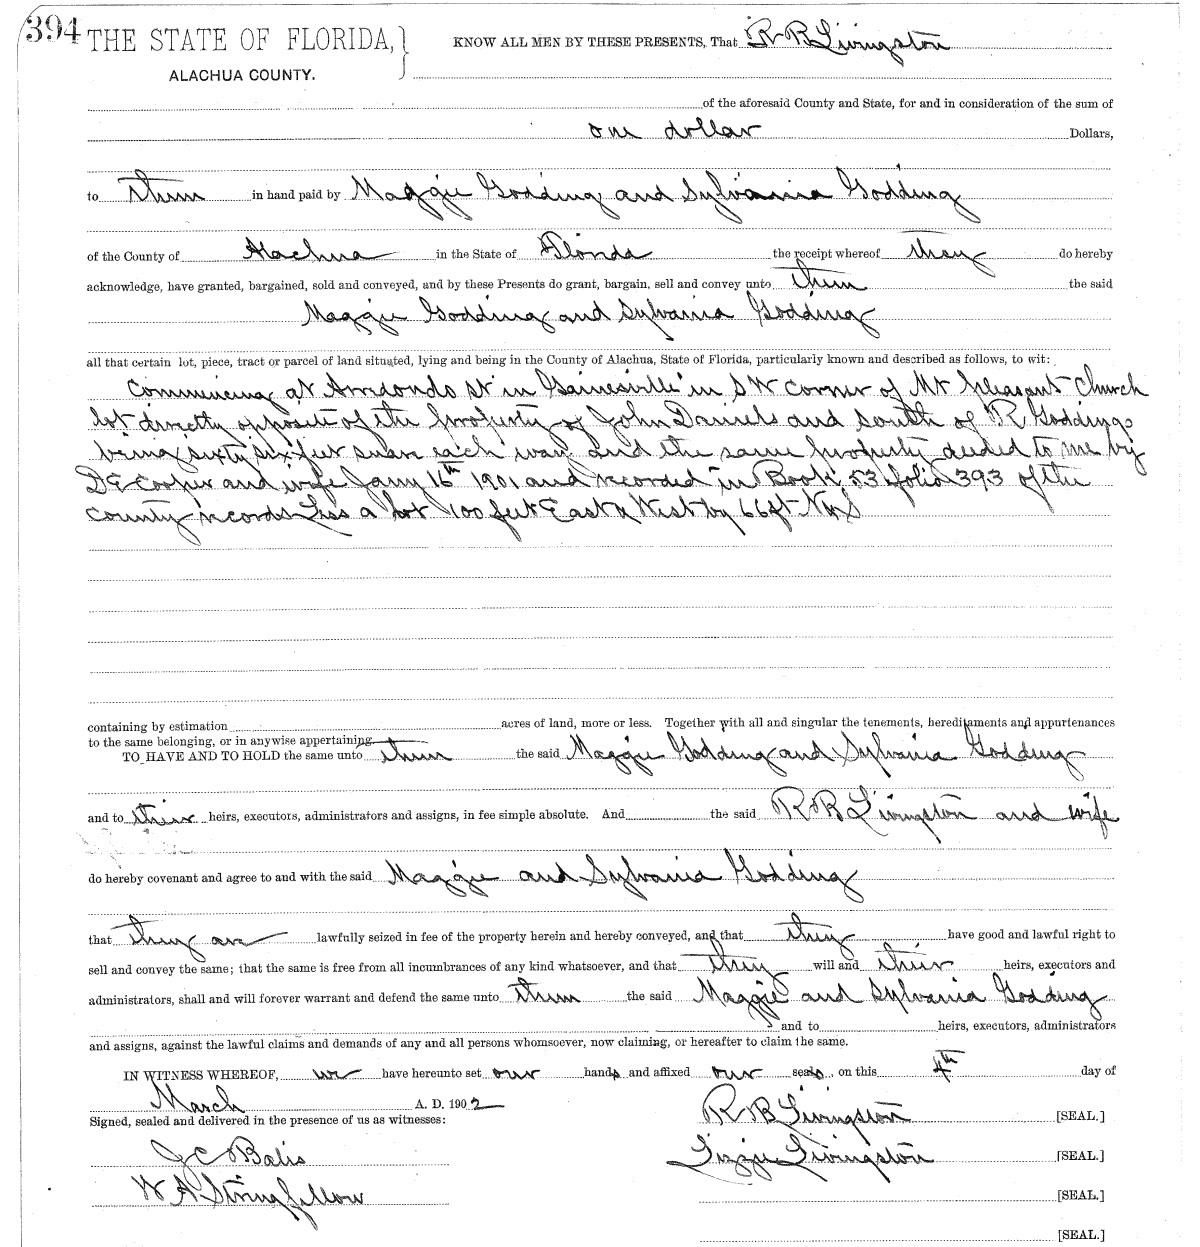 394 THE STATE OF FLORIDA, } KNOW ALL MEN BY THESE PRESENTS, That R R Livingston
ALACHUA COUNTY.
of the aforesaid County and State, for and in consideration of the sum of
one dollar Dollars,
to them in hand paid by Maggie Godding and Sylvania Godding
of the County of Alachua in the State of Florida the receipt whereof they do hereby
acknowledge, have granted, bargained, sold and conveyed, and by these Presents do grant, bargain, sell and convey unto them the said
Maggie Godding and Sylvania Godding
all that certain lot, piece, tract or parcel of land situated, lying and being in the County of Alachua, State of Florida, particularly known and described as follows, to wit:
Commencing at Arredondo St in Gainesville in SW corner of Mt Pleasant Church
lot directly opposite of the property of John Daniels and south of R Goddings
being sixty six feet each way and the same property deeded to me by
D E Cooper and wife Jany 16th 1901 and recorded in Book 53 folio 393 of the
county records Less a lot 100 feet East & West by 66 ft N & S
containing by estimation acres of land, more or less. Together with all and singular the tenements, hereditaments and appurtenances
to the same belonging, or in anywise appertaining
TO HAVE AND TO HOLD the same unto them the said Maggie Godding and Sylvania Godding
and to their heirs, executors, administrators and assigns, in fee simple absolute. And the said R R Livingston and wife
do hereby covenant and agree to and with the said Maggie and Sylvania Godding
that they are lawfully seized in fee of the property herein and hereby conveyed, and that they have good and lawful right to
sell and convey the same; that the same is free from all incumbrances of any kind whatsoever, and that they will and their heirs, executors and
administrators, shall and will forever warrant and defend the same unto them the said Maggie and Sylvania Godding
and to heirs, executors, administrators
and assigns, against the lawful claims and demands of any and all persons whomsoever, now claiming, or hereafter to claim the same.
IN WITNESS WHEREOF, we have hereunto set our hands and affixed our seals, on this 4th day of
March A. D. 1902
Signed, sealed and delivered in the presence of us as witnesses: R B Livingston [SEAL.]
J C Balis Lizzie Livingston [SEAL.]
W A Stringfellow [SEAL.]
[SEAL.]